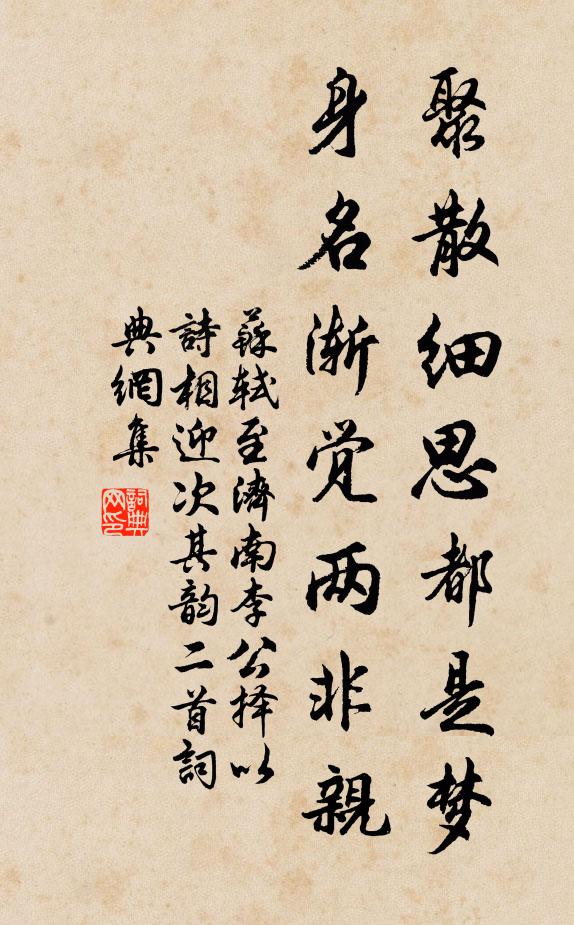 聚散细思都是梦
身名渐觉两非親
蘇轼至濟南李公择以
詩相迎次其韵二首詞
典網集
詞典
网印